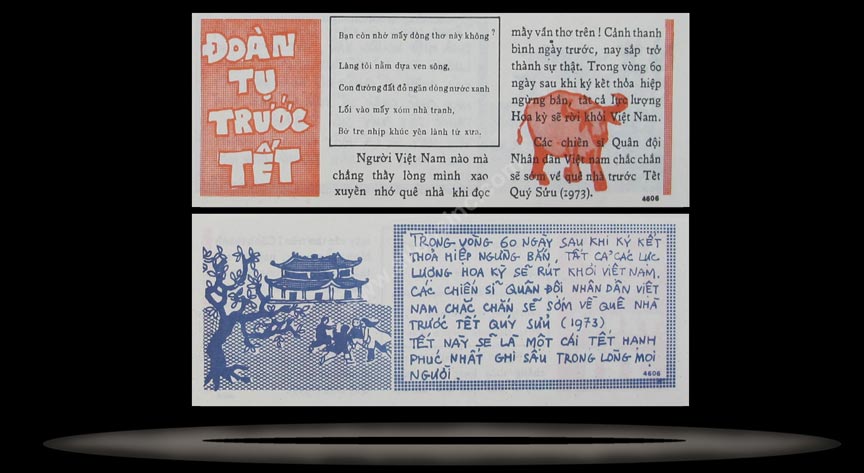 ĐOÀN
TỤ
TRƯỚC
TẾT
Bạn còn nhớ mấy dòng thơ này không ?
Làng tôi nằm dựa ven sông,
Con đường đất đỏ ngăn dòng nước xanh
Lối vào mấy xóm nhà tranh,
Bờ tre nhịp khúc yên lành từ xưa.
Người Việt Nam nào mà
chẳng thấy lòng mình xao
xuyến nhớ quê nhà khi đọc
mấy vần thơ trên ! Cảnh thanh
bình ngày trước, nay sắp trở
thành sự thật. Trong vòng 60
ngày sau khi ký kết thỏa hiệp
ngừng bắn, tất cả lực lượng
Hoa kỳ sẽ rời khỏi Việt Nam.
Các chiến sĩ Quân đội
Nhân dân Việt nam chắc chắn
sẽ sớm về quê nhà trước Tết
Quý Sửu (1973).
4606
TRONG VÒNG 60 NGÀY SAU KHI KÝ KẾT
THỎA HIỆP NGƯNG BẮN, TẤT CẢ CÁC LỰC
LƯỢNG HOA KỲ SẼ RÚT KHỎI VIỆT NAM.
CÁC CHIẾN SĨ QUÂN ĐỘI NHÂN DÂN VIỆT
NAM CHẮC CHẮN SẼ SỚM VỀ QUÊ NHÀ
TRƯỚC TẾT QUÝ SỬU (1973)
TẾT NÀY SẼ LÀ MỘT CÁI TẾT HẠNH
PHÚC NHẤT GHI SÂU TRONG LÒNG MỌI
NGƯỜI.
4606